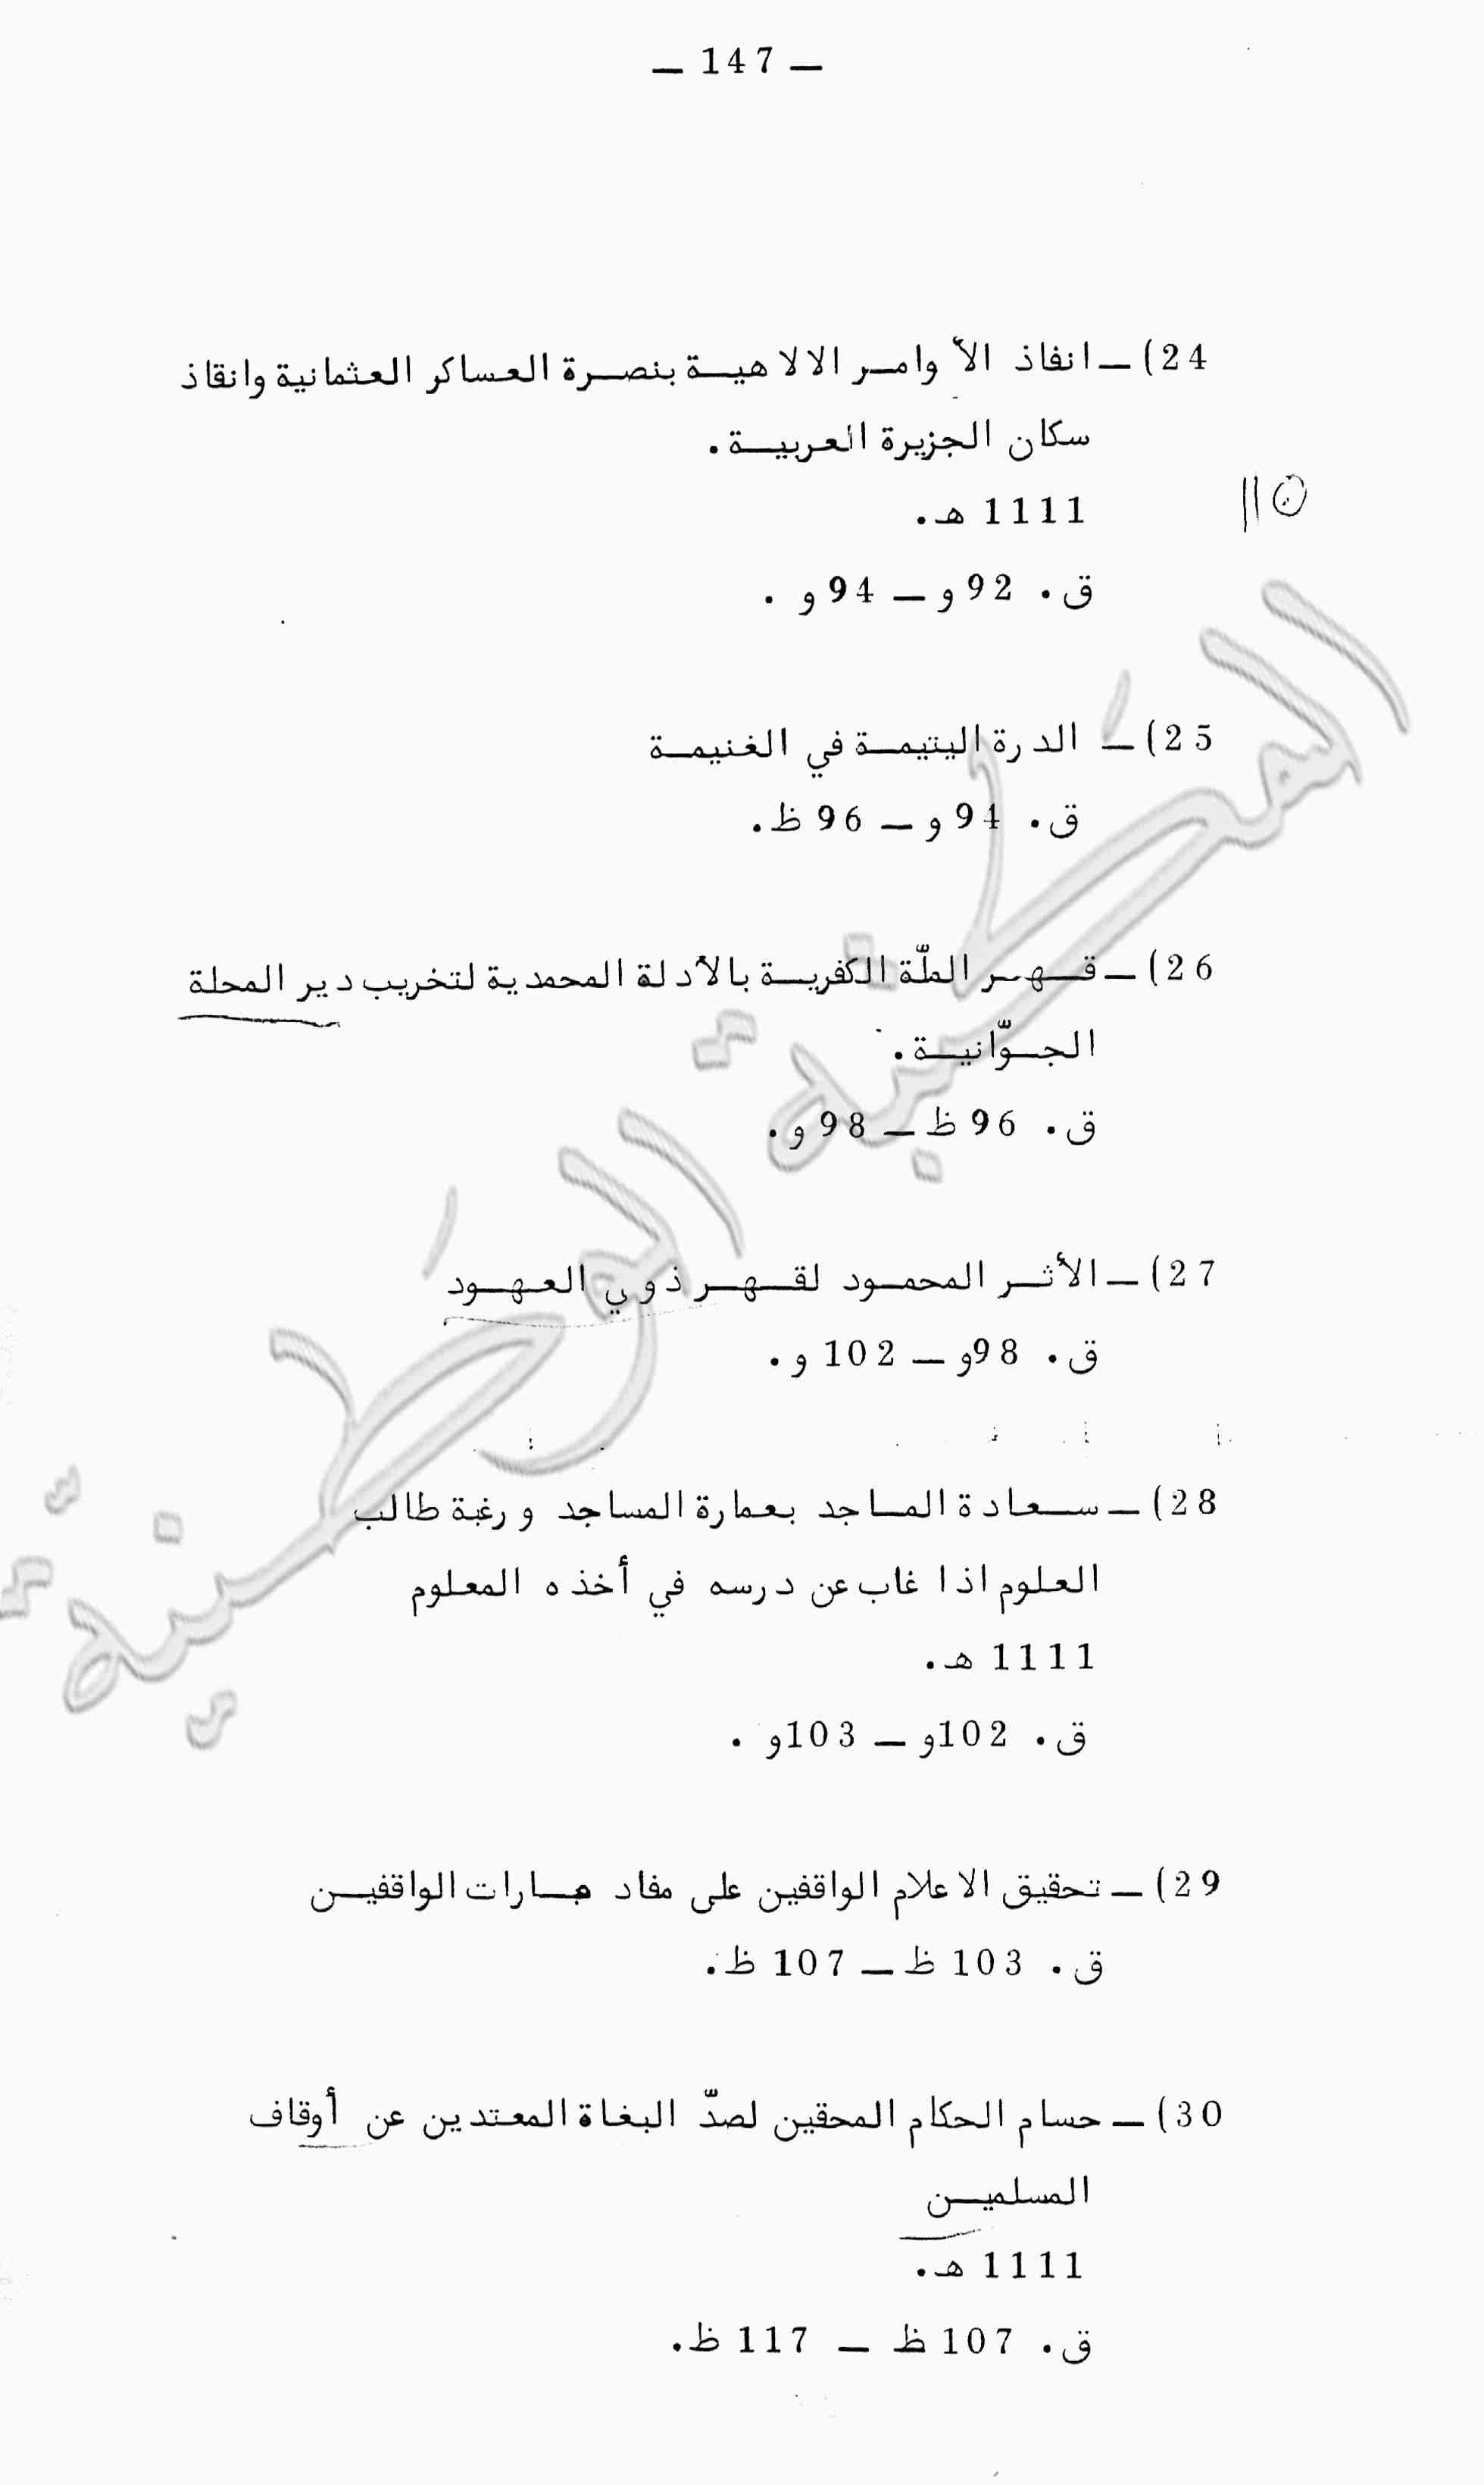 — 147 —
24) — انفاذ الأوامر الالاهية بنصرة العساكر العثمانية وانقاذ
سكان الجزيرة العربية.
1111 هـ.
110
ق. 92 و — 94 و .
25) — الدرة اليتيمة في الغنيمة
ق. 94 و — 96 ظ.
26) — قهر الملّة الكفرية بالأدلة المحمدية لتخريب دير المحلة
الجوّانية.
ق. 96 ظ — 98 و.
27) — الأثر المحمود لقهر ذوي العهود
ق. 98و — 102 و.
28) — سعادة الماجد بعمارة المساجد ورغبة طالب
العلوم اذا غاب عن درسه في أخذه المعلوم
1111 هـ.
ق. 102و — 103و .
29) — تحقيق الاعلام الواقفين على مفاد الواقفين
ق. 103 ظ — 107 ظ.
30) — حسام الحكام المحقين لصدّ البغاة المعتدين عن أوقاف
المسلمين
1111 هـ.
ق. 107 ظ — 117 ظ.
المكتبة الوطنية